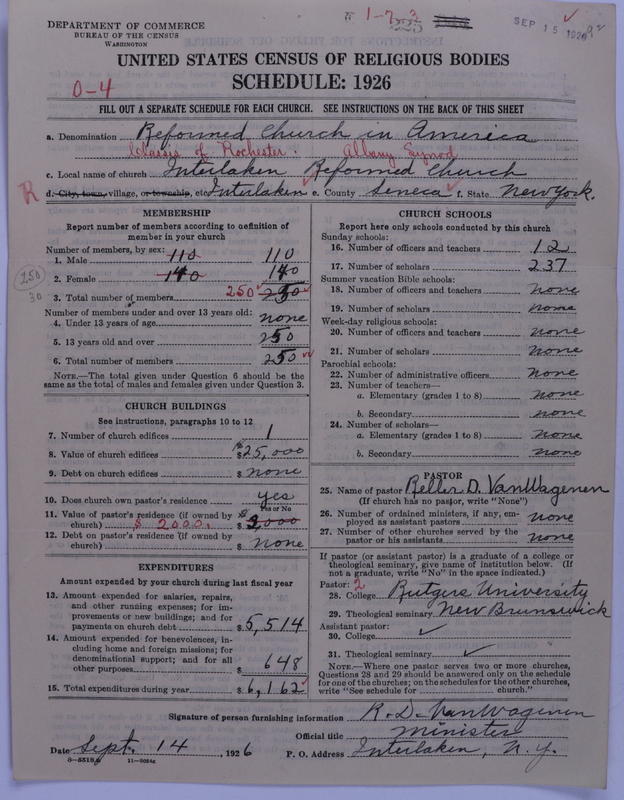 DEPARTMENT OF COMMERCE
BUREAU OF THE CENSUS
WASHINGTON
1-7-3
SEP 15 1926
UNITED STATES CENSUS OF RELIGIOUS BODIES
SCHEDULE: 1926
0-4
FILL OUT A SEPARATE SCHEDULE FOR EACH CHURCH. SEE INSTRUCTIONS ON THE BACK OF THIS SHEET
a. Denomination Reformed Church in America
Classis of Rochester. Albany Synod
c. Local name of church Interlaken Reformed Church
R
d. City, town, village, or township, etc Interlaken e. County Seneca f. State New York.
MEMBERSHIP
Report number of members according to definition of
member in your church
Number of members, by sex:
1. Male 110 110
2. Female 140 140
3. Total number of members 250 250
250
30
Number of members under and over 13 years old:
4. Under 13 years of age none
5. 13 years old and over 250
6. Total number of members 250
NOTE.—The total given under Question 6 should be
same as the total of males and females given under Question 3.
CHURCH BUILDINGS
See instructions, paragraphs 10 to 12
7. Number of church edifices 1
8. Value of church edifices $25,000
9. Debt on church edifices $ none
10. Does church own pastor's residence yes
Yes or No
11. Value of pastor's residence (if owned by
church) $ 2000. $
12. Debt on pastor's residence (if owned by
church) $ none
EXPENDITURES
Amount expended by your church during last fiscal year
13. Amount expended for salaries, repairs,
and other running expenses; for im-
provements or new buildings; and for
payments on church debt $5,514
14. Amount expended for benevolences, in-
cluding home and foreign missions; for
denominational support; and for all
other purposes $ 648
15. Total expenditures during year $6,162
CHURCH SCHOOLS
Report here only schools conducted by this church
Sunday schools:
16. Number of officers and teachers 12
17. Number of scholars 237
Summer vacation Bible schools:
18. Number of officers and teachers none
19. Number of scholars none
Week-day religious schools:
20. Number of officers and teachers none
21. Number of scholars none
Parochial schools:
22. Number of administrative officers none
23. Number of teachers—
a. Elementary (grades 1 to 8) none
b. Secondary none
24. Number of scholars—
a. Elementary (grades 1 to 8) none
b. Secondary none
PASTOR
25. Name of pastor D. VanWagenen
(If church has no pastor, write "None")
26. Number of ordained ministers, if any, em-
ployed as assistant pastors none
27. Number of other churches served by the
pastor or his assistants none
If pastor (or assistant pastor) is a graduate of a college or
theological seminary, give name of institution below. (If
not a graduate, write "No" in the space indicated.)
Pastor: 2
28. College Rutgers University
29. Theological seminary New Brunswick
Assistant pastor:
30. College
31. Theological seminary
NOTE.—Where one pastor serves two or more churches,
Questions 28 and 29 should be answered only on the schedule
for one of the churches; on the schedules for the other churches,
write "See schedule for church."
Signature of person furnishing information R. D. VanWagenen
Official title Minister
Date Sept. 14, 1926 P. O. Address Interlaken, N. Y.